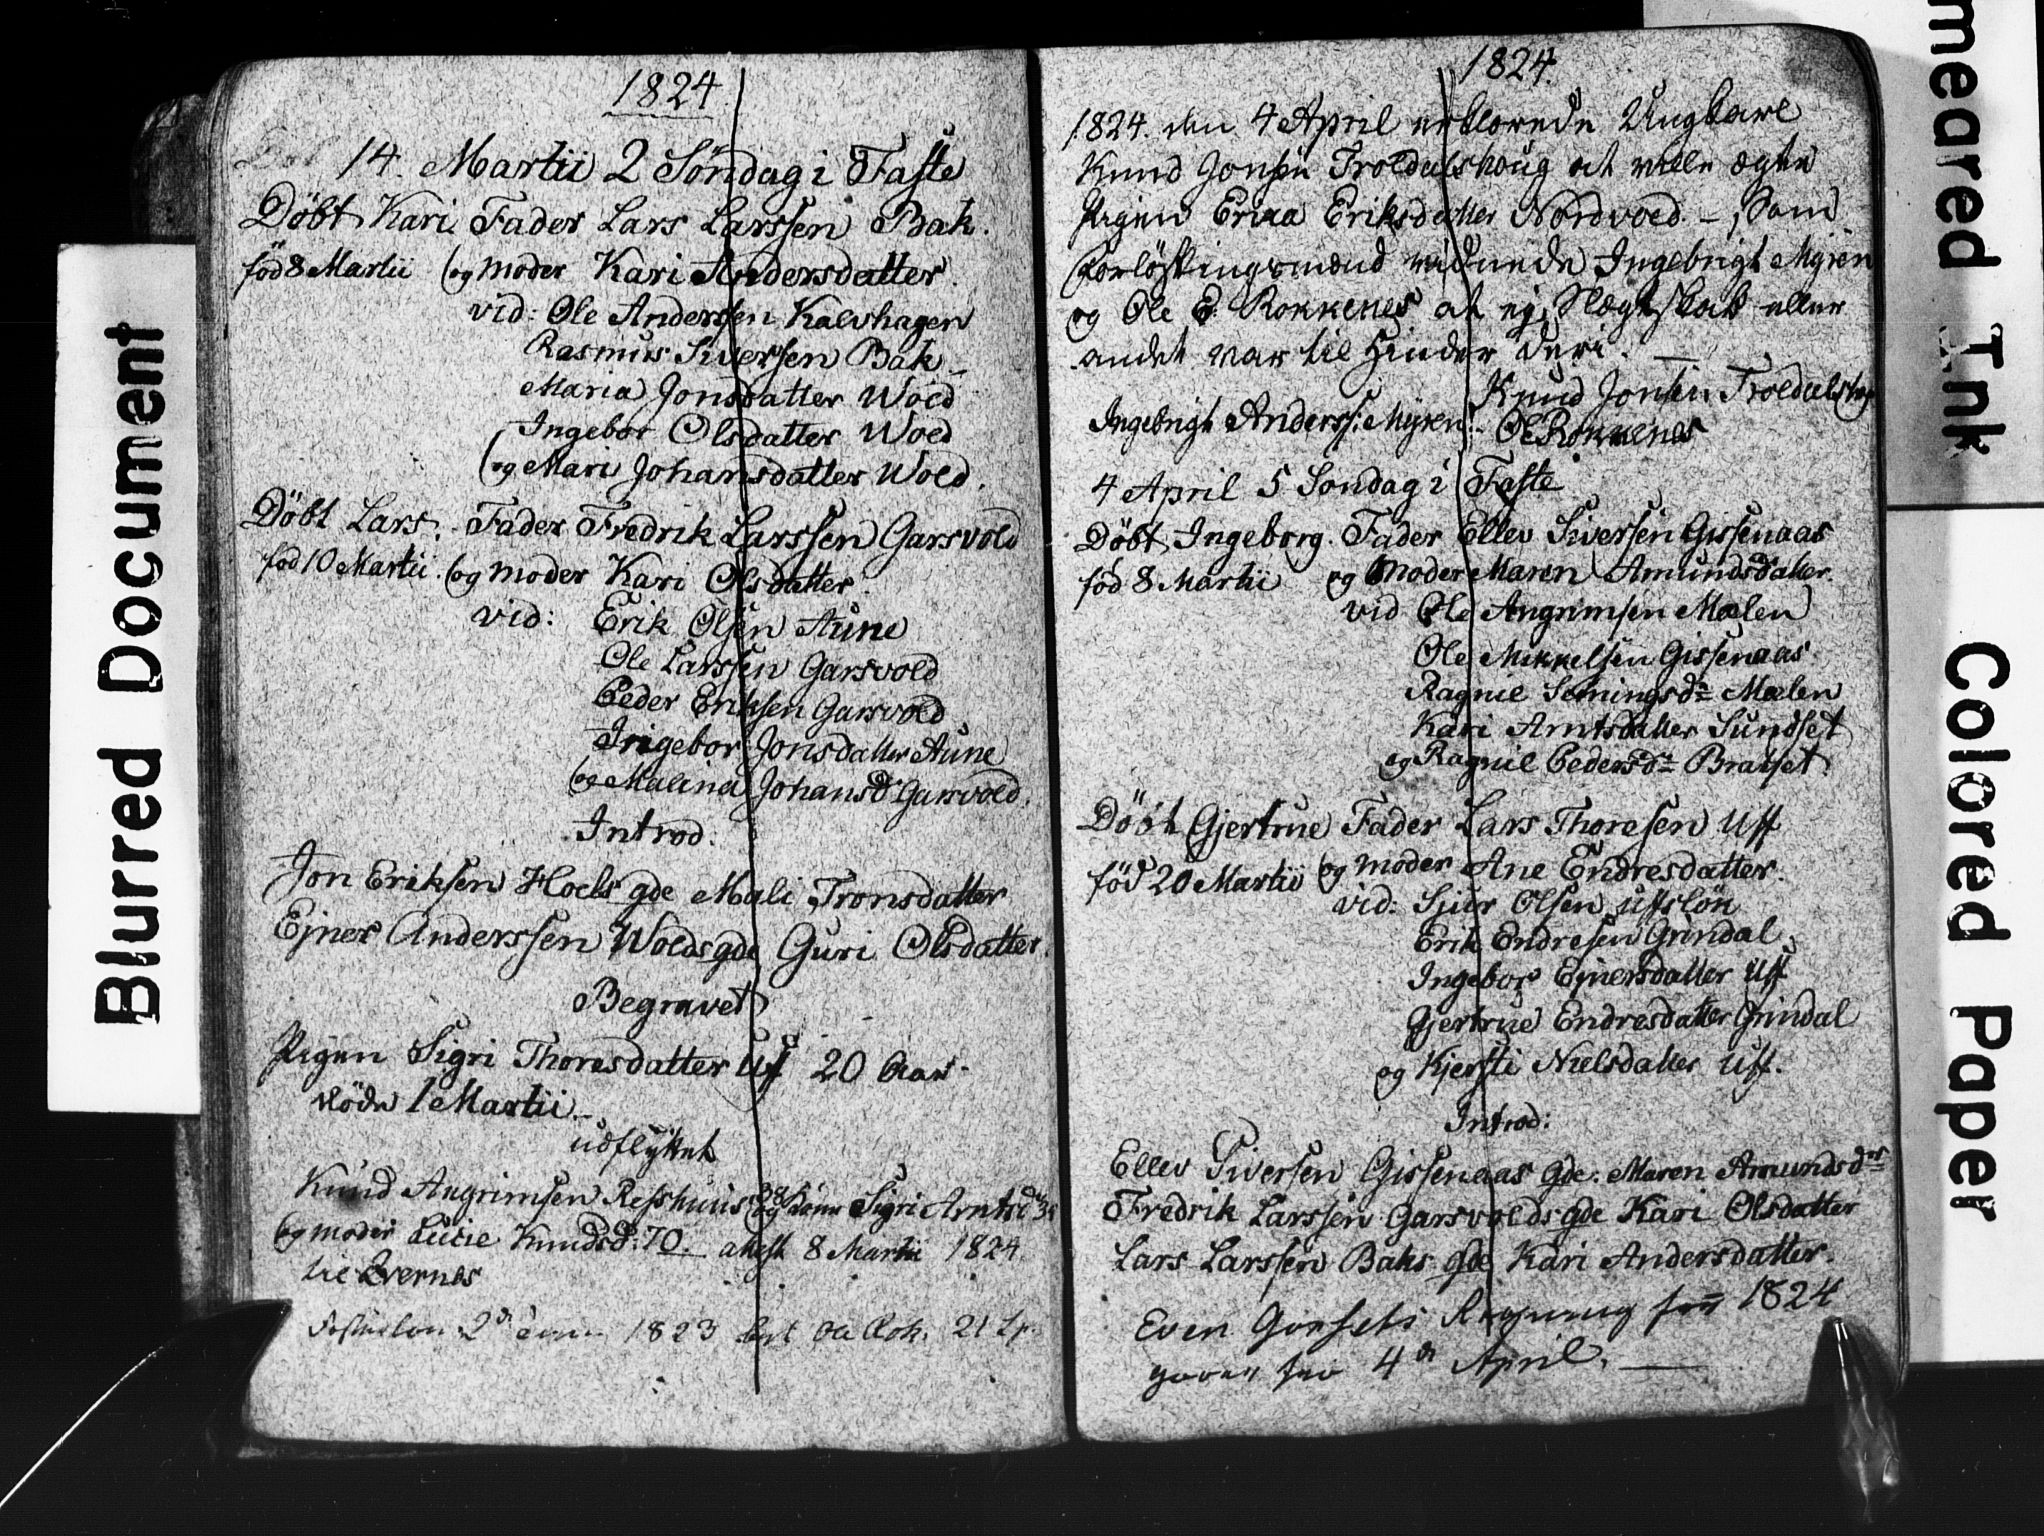 1824.
14. Martii 2 Söndag i Faste
Döbt Kari. Fader Lars Larssen Bak.
föd 8 Martii og moder Kari Andersdatter.
vid: Ole Anderssen Kalvhagen
Rasmus Siversen Bak
Maria Jonsdatter Wold
Ingebor Olsdatter Wold
og Mari Johansdatter Wold.
Döbt Lars. Fader Fredrik Larssen Garsvold
föd 10 Martii. og moder Kari Olsdatter.
vid: Erik Olsen Aune
Ole Larssen Garsvold
Peder Eriksen Garsvold
Ingebor Jonsdatter Aune
og Malina Johansd Garsvold.
Introd.
Jon Eriksen Hoels gde Mali Tronsdatter
Ejner Anderssen Wolds gde Guri Olsdatter.
Begravet
Pigen Sigri Thoresdatter Uff 20 Aar
döde 1 Martii.
udflyttet
Knud Angrimsen Resshuus 38 og Kone Sigri Arntsd
og moder Lucie Knudsd: 70. attest 8 Martii 1824
til Qvernes
1823 21
1824.
1824. den 4 April erklærede Ungkarl
Knud Jonsen Troldalshoug at ville ægte
Pigen Eriksdatter Nordvold. – Som
Forlöftingsmænd vidnede Ingebrigt Myren
og Ole E. Rokkenes at ej Slægtskab eller
andet var til Hinder deri. —
Knud Jonsen Troldalshog
Ingebrigt Anderss: Myren. Ole Rokkenes
4 April 5 Söndag i Faste
Döbt Ingeborg. Fader Ellev Siversen Gissenaas
föd 8 Martii og Moder Maren Amundsdatter.
vid Ole Angrimsen Mælen
Ole Mikkelsen Gissenaas
Ragnil Semingsdr Mælen
Kari Arntsdatter Sundset
og Ragnil Pedersdr Bratset.
Döbt Gjertrue Fader Lars Thoresen Uff
föd 20 Martii og moder Ane Endresdatter.
vid: Siver Olsen Uffslön
Erik Endresen Grindal
Ingebor Ejnersdatter Uff
Gjertrue Endresdatter Grindal
og Kjersti Nielsdatter Uff.
Introd:
Ellev Siversen Gissenaas gde: Maren Amundsdr
Fredrik Larssen Garsvolds gde Kari Olsdatter
Lars Larssen Baks gde Kari Andersdatter.
Even Gorsets Regning for 1824
4de April. —
Blurred Document
meared Ink
Colored Paper